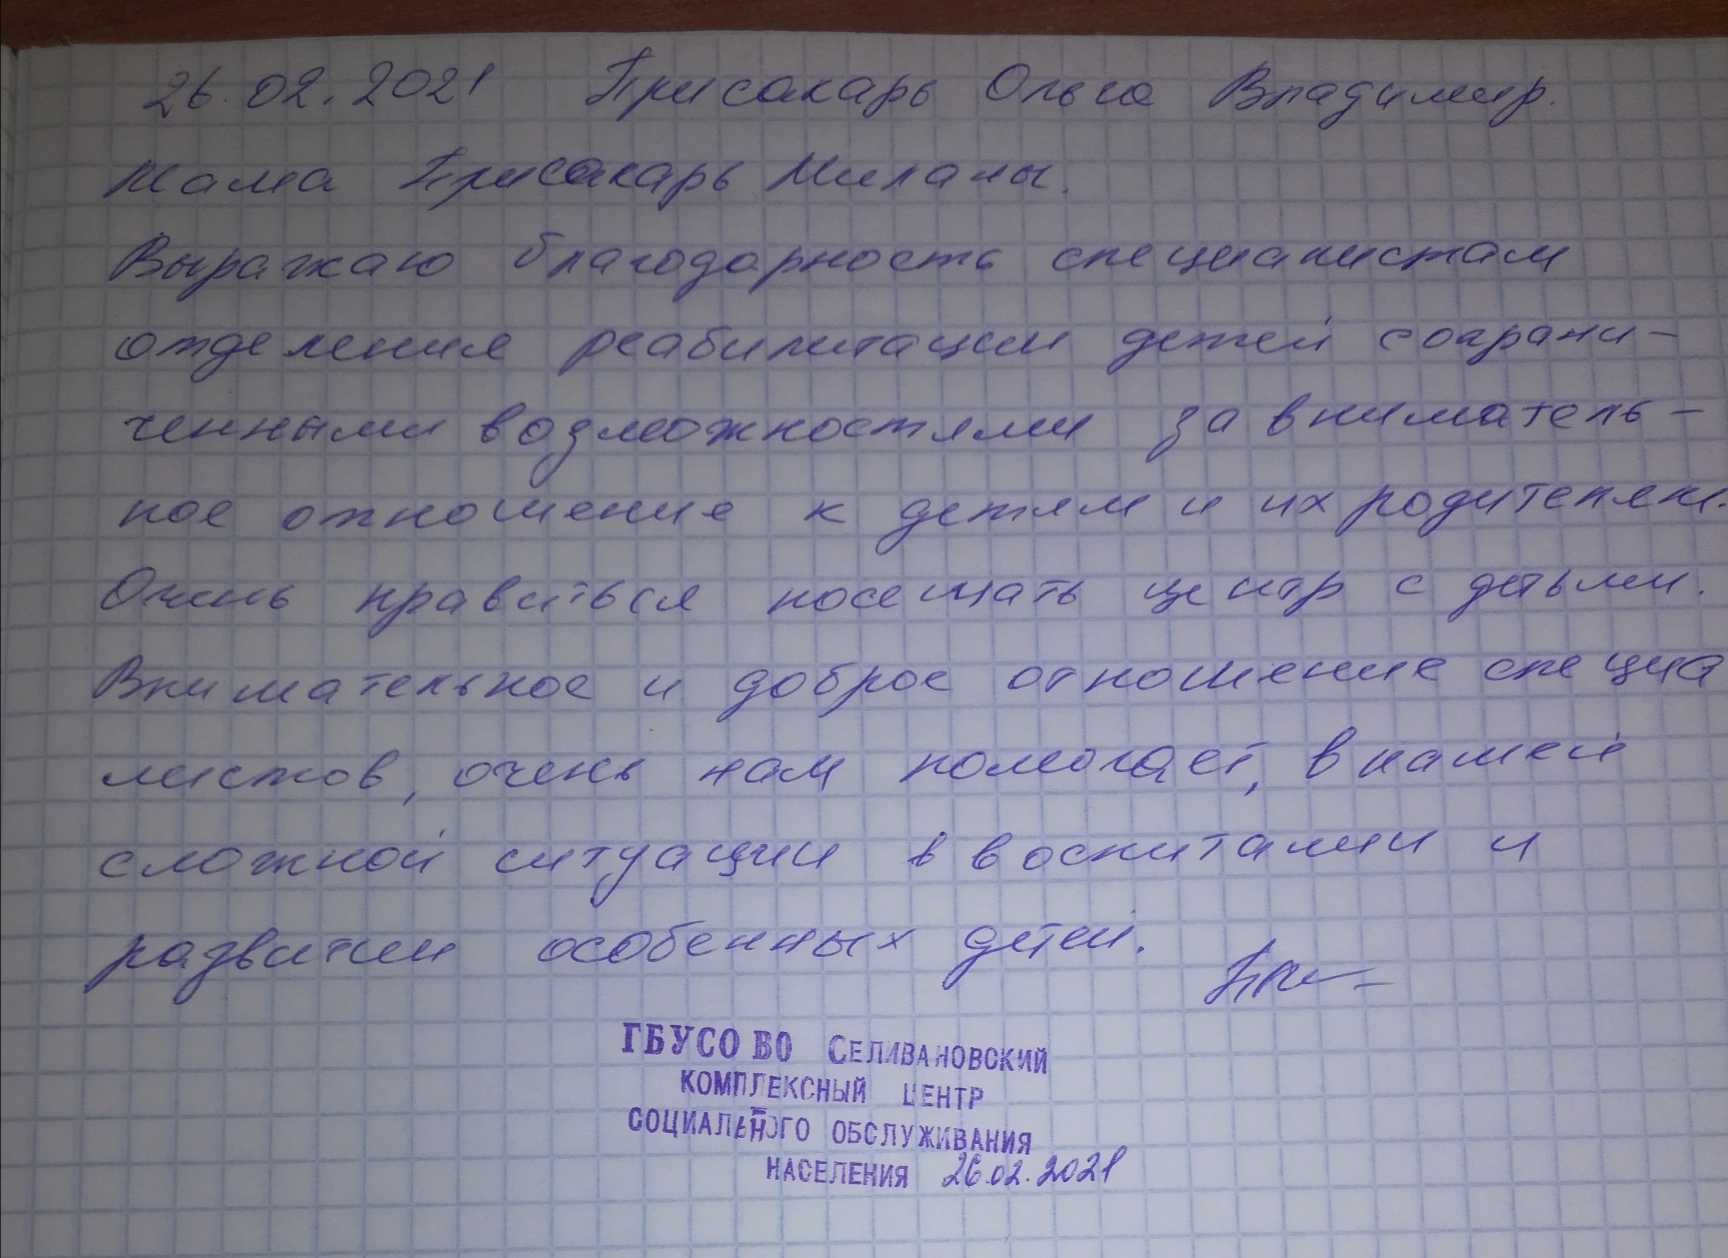 26.02.2021 Присакарь Ольга Владимир.
мама Присакарь Миланы.
Выражаю благодарность специалистам
отделения реабилитации детей с ограни-
ченными возможностями за вниматель-
ное отношение к детям и их родителям.
Очень нравиться посещать центр с детьми.
Внимательное и доброе отношение специа
листов, очень нам помогает, в нашей
сложной ситуации в воспитании и
развитии особенных детей.
ГБУСО ВО СЕЛИВАНОВСКИЙ
КОМПЛЕКСНЫЙ ЦЕНТР
СОЦИАЛЬНОГО ОБСЛУЖИВАНИЯ
НАСЕЛЕНИЯ 26.02.2021